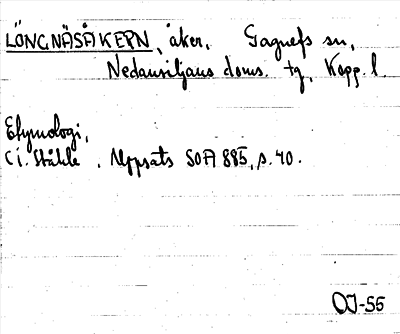 LÖNGNÄSÅKERN, åker, Gagnefs sn,
Nedansiljans doms. tg, Kopp. l.
Etymologi,
C.I. Ståhle. Uppsats SOA 885, s. 40.
OJ-55